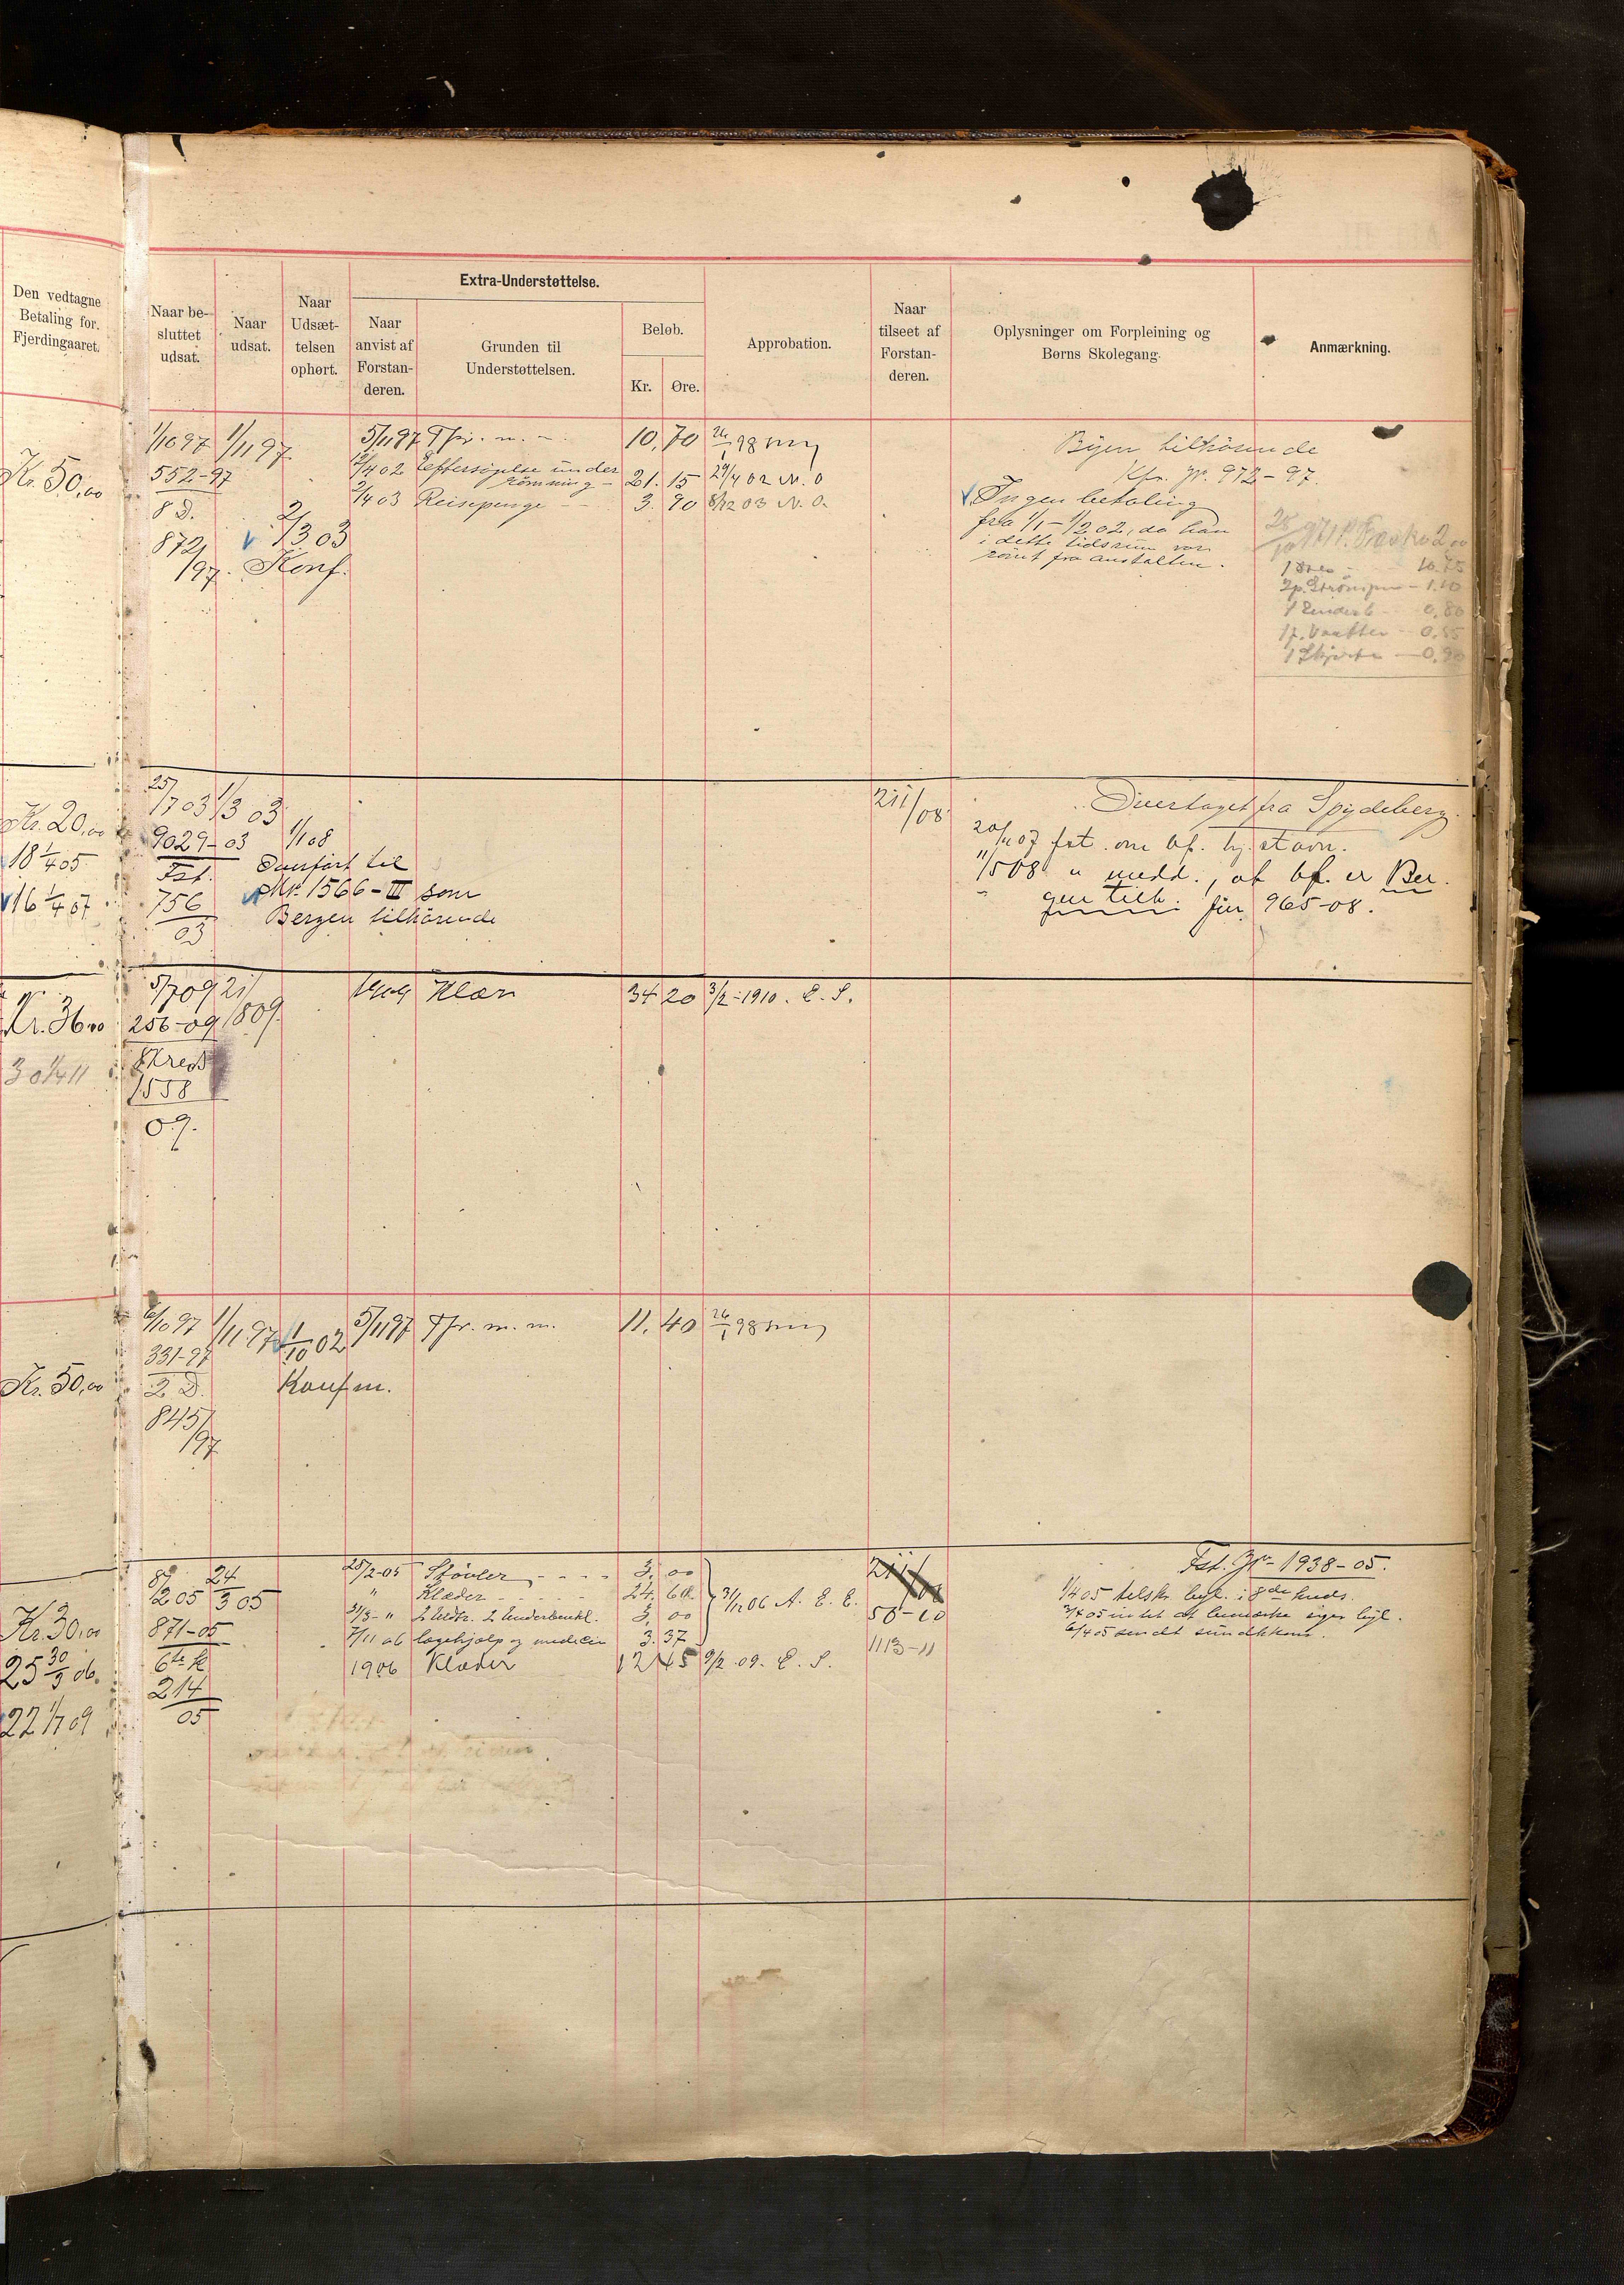 Den vedtagne
Betaling for.
Fjerdingaaret.
Naar be-
sluttet
udsat.
Naar
udsat.
Naar
Udsæt-
telsen
ophørt.
Extra-Understøttelse.
Naar
anvist af
Forstan-
deren.
Grunden til
Understøttelsen.
Beløb.
Kr.
Øre.
Approbation.
Naar
tilseet af
Forstan-
deren.
Oplysninger om Forpleining og
Børns Skolegang.
Anmærkning.
Kr. 50,00
1/10 97
552-97
8 D.
872/97.
1/11 97
2/3 03
Konf.
5/11 97 Tfr. m. 10,70 26/1 98
12/4 02 Eftersøgelse under
rømning - 21. 15 29/4 02 N. O
2/4 03 Reisepenge - - 3. 90 8/12 03 N. O.
Byen tilhörende
Kfr. Jr. 972-97.
Ingen betaling
fra 1/1 - 1/2 02, da han
i dette tidsrum var
römt fra anstalten.
28/10 97
10.75
2p. Strömper - 1.10
0,80
0,55
1 Skjorte - 0,90
Kr. 20,00
18 1/4 05
16 1/4 07
25/7 03
9029-03
Fst.
756
03
1/3 03
1/1 08
Overført til
Nr. 1566-III som
Bergen tilhörende
211/08
Overtaget fra Spydeberg.
20/11 07 fst. om bf. hj. stavn.
11/5 08 " medd., at bf. er Ber-
gen tilh. Jür. 965-08.
Kr. 36,00
30 1/4 11
5/7 09
256-09
8 Kreds
1558
09.
21/8 09.
1909 Klær 34 20 3/2-1910. E. S.
Kr. 50,00
6/10 97
331-97
2 D.
845/97
1/11 97
1/10 02
Konfm.
5/11 97 Tfr. m. m. 11. 40 26/1 98
Kr. 30,00
25 30/3 06.
22 1/7 09
8/2 05
871-05
6te K
214
05
24/3 05
25/2-05 Støvler - - - - 3. 00
" Klæder - - - - 24. 60
31/3- " 2 Uldtr. 2 Underbenkl. 3, 00
31/12 06 A. E. E.
7/11 06 lægehjælp og medicin 3. 37
1906 Klæder 12 45 9/2 .09. E. S.
211/08
50-10
1113-11
Fst. Jr - 1938-05.
1/4 05 tilskr. tgl. i 8de kreds.
3/4 05 intet at bemærke siger tgl.
6/4 05 sendt sundhkom.